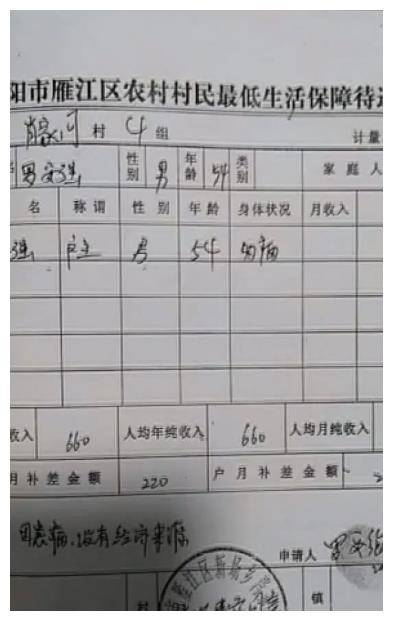 阳市雁江区农村村民最低生活保障待
肖家河 村 4 组 计量
罗安强 性别 男 年龄 54 类别 家庭人
名 称谓 性别 年龄 身体状况 月收入
强 户主 男 54
收入 660 人均年纯收入 660 人均月纯收入
月补差金额 220 户月补差金额
因患病、没有经济来源
申请人 罗安强
村 镇